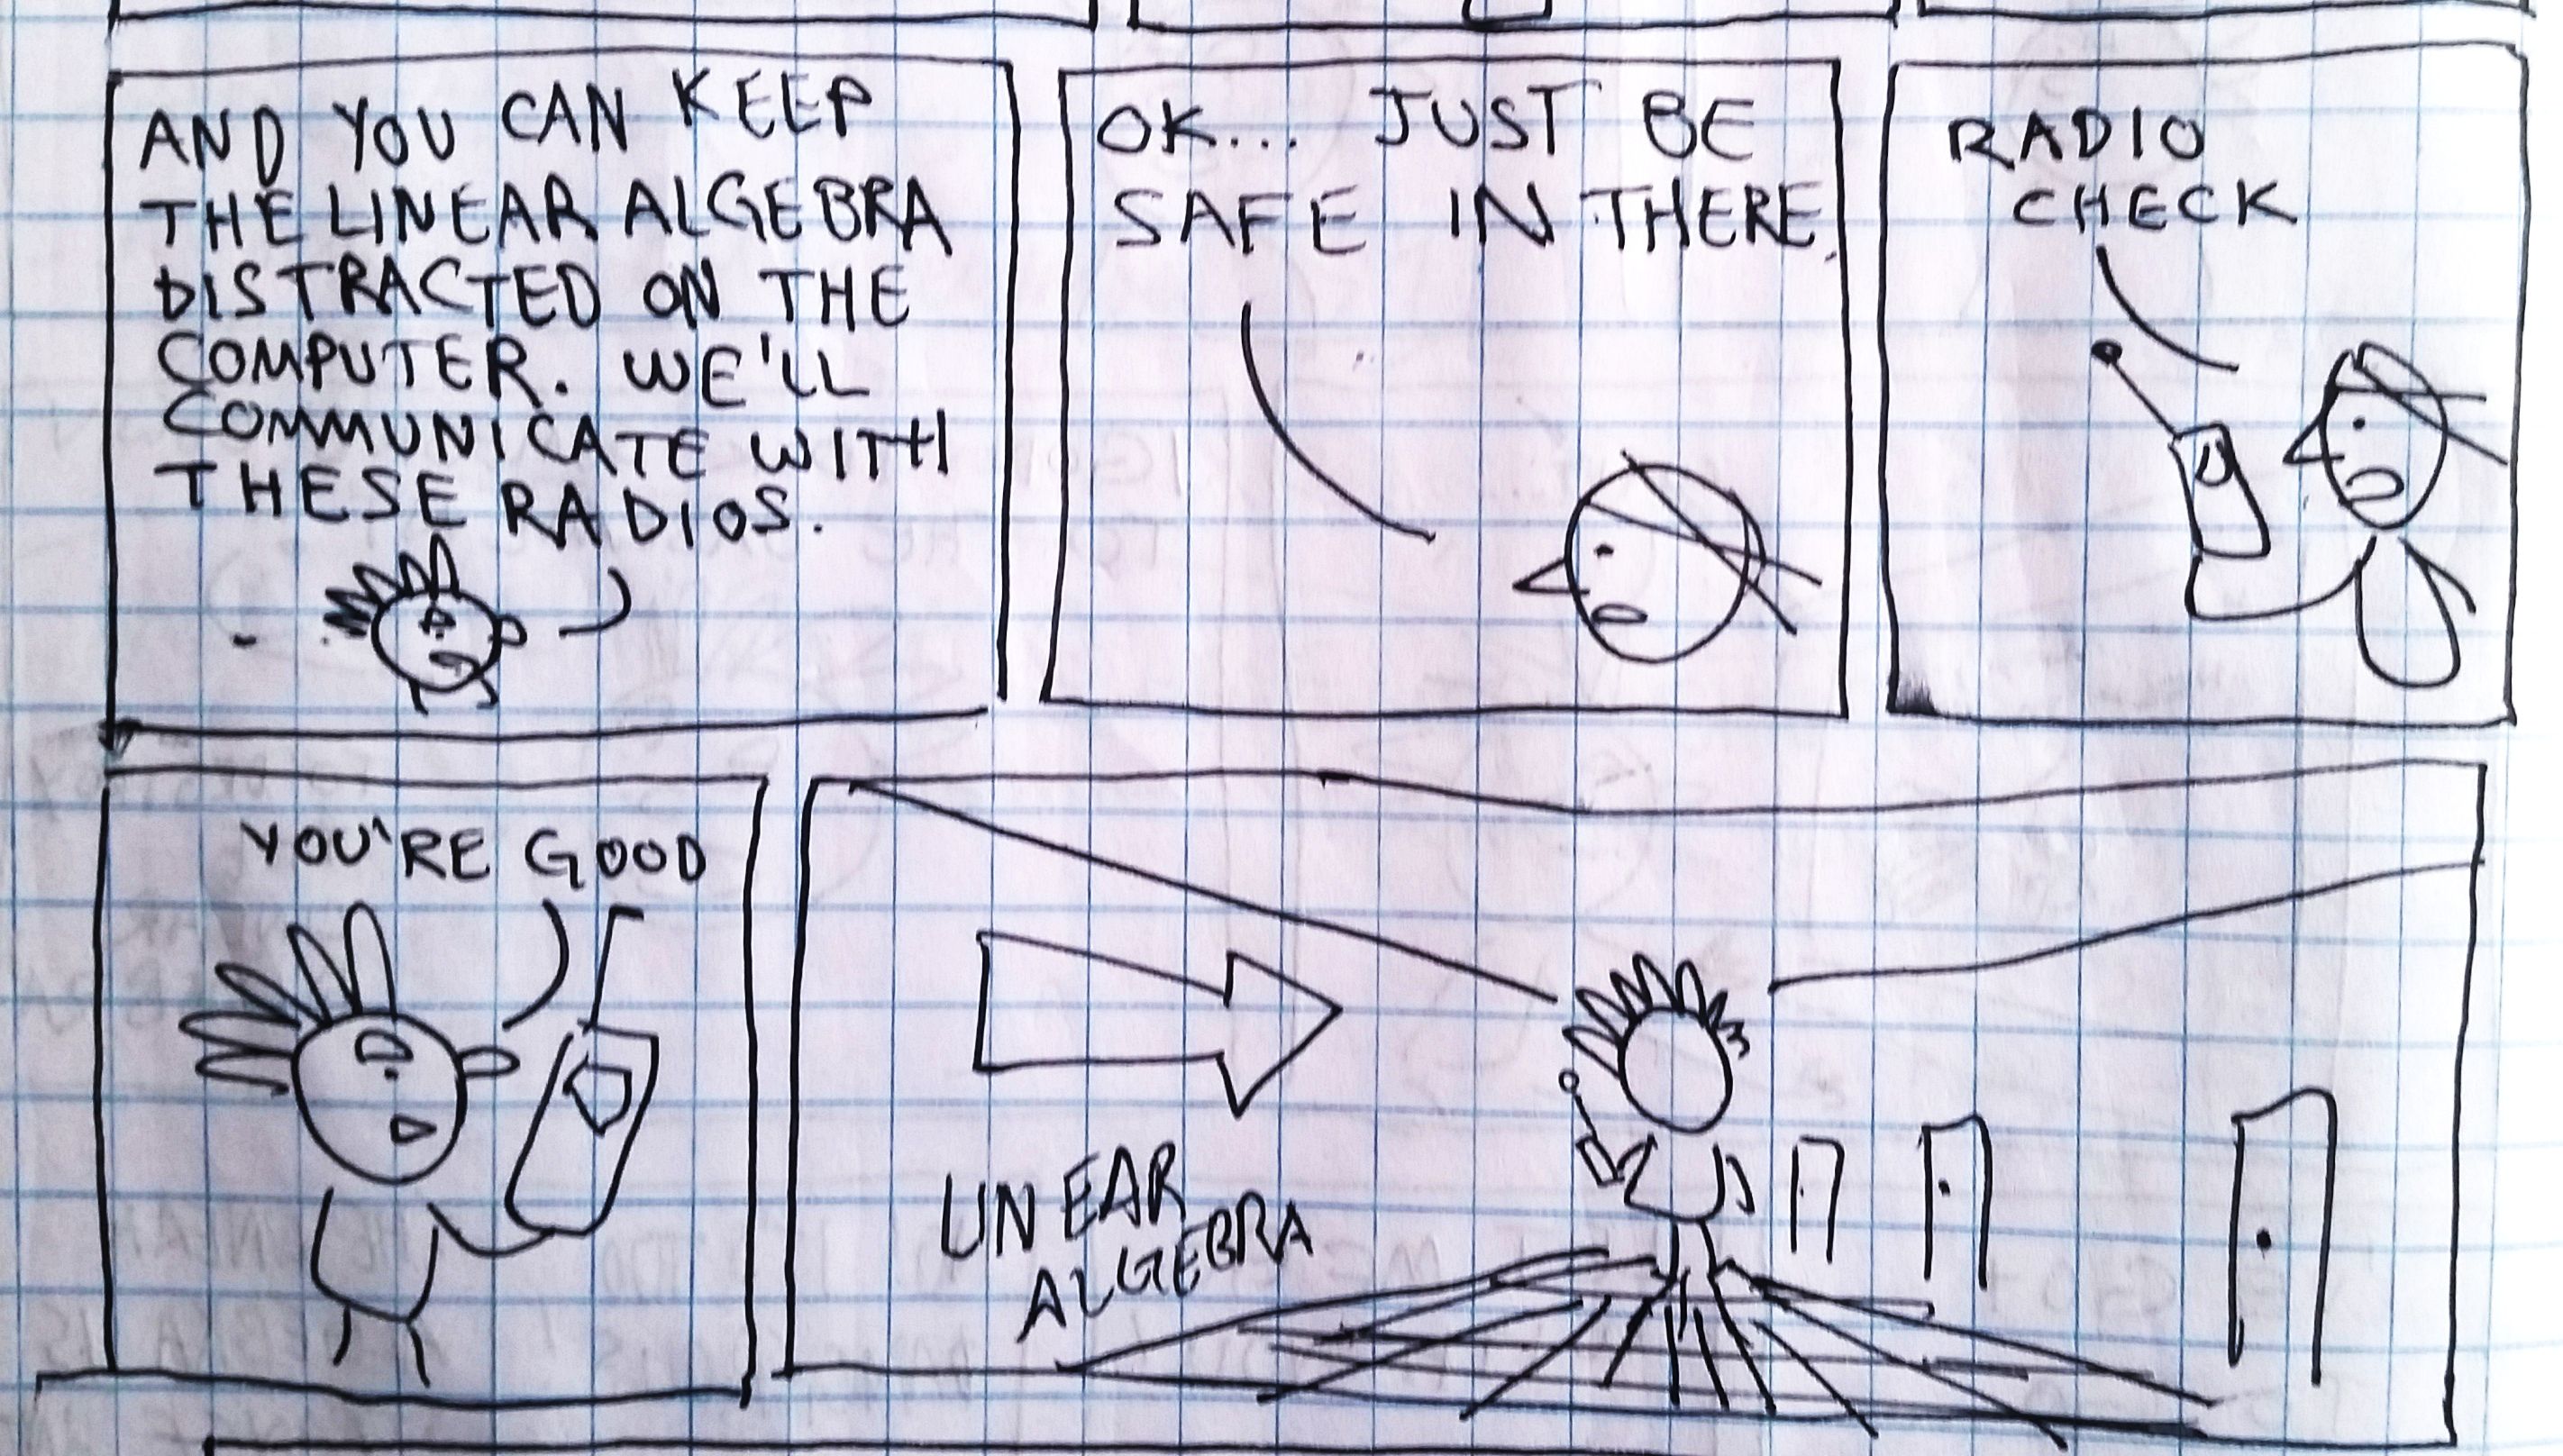 AND YOU CAN KEEP
THE LINEAR ALGEBRA
DISTRACTED ON THE
COMPUTER. WE'LL
COMMUNICATE WITH
THESE RADIOS.
OK... JUST BE
SAFE IN THERE.
RADIO
CHECK
YOU'RE GOOD
LINEAR
ALGEBRA